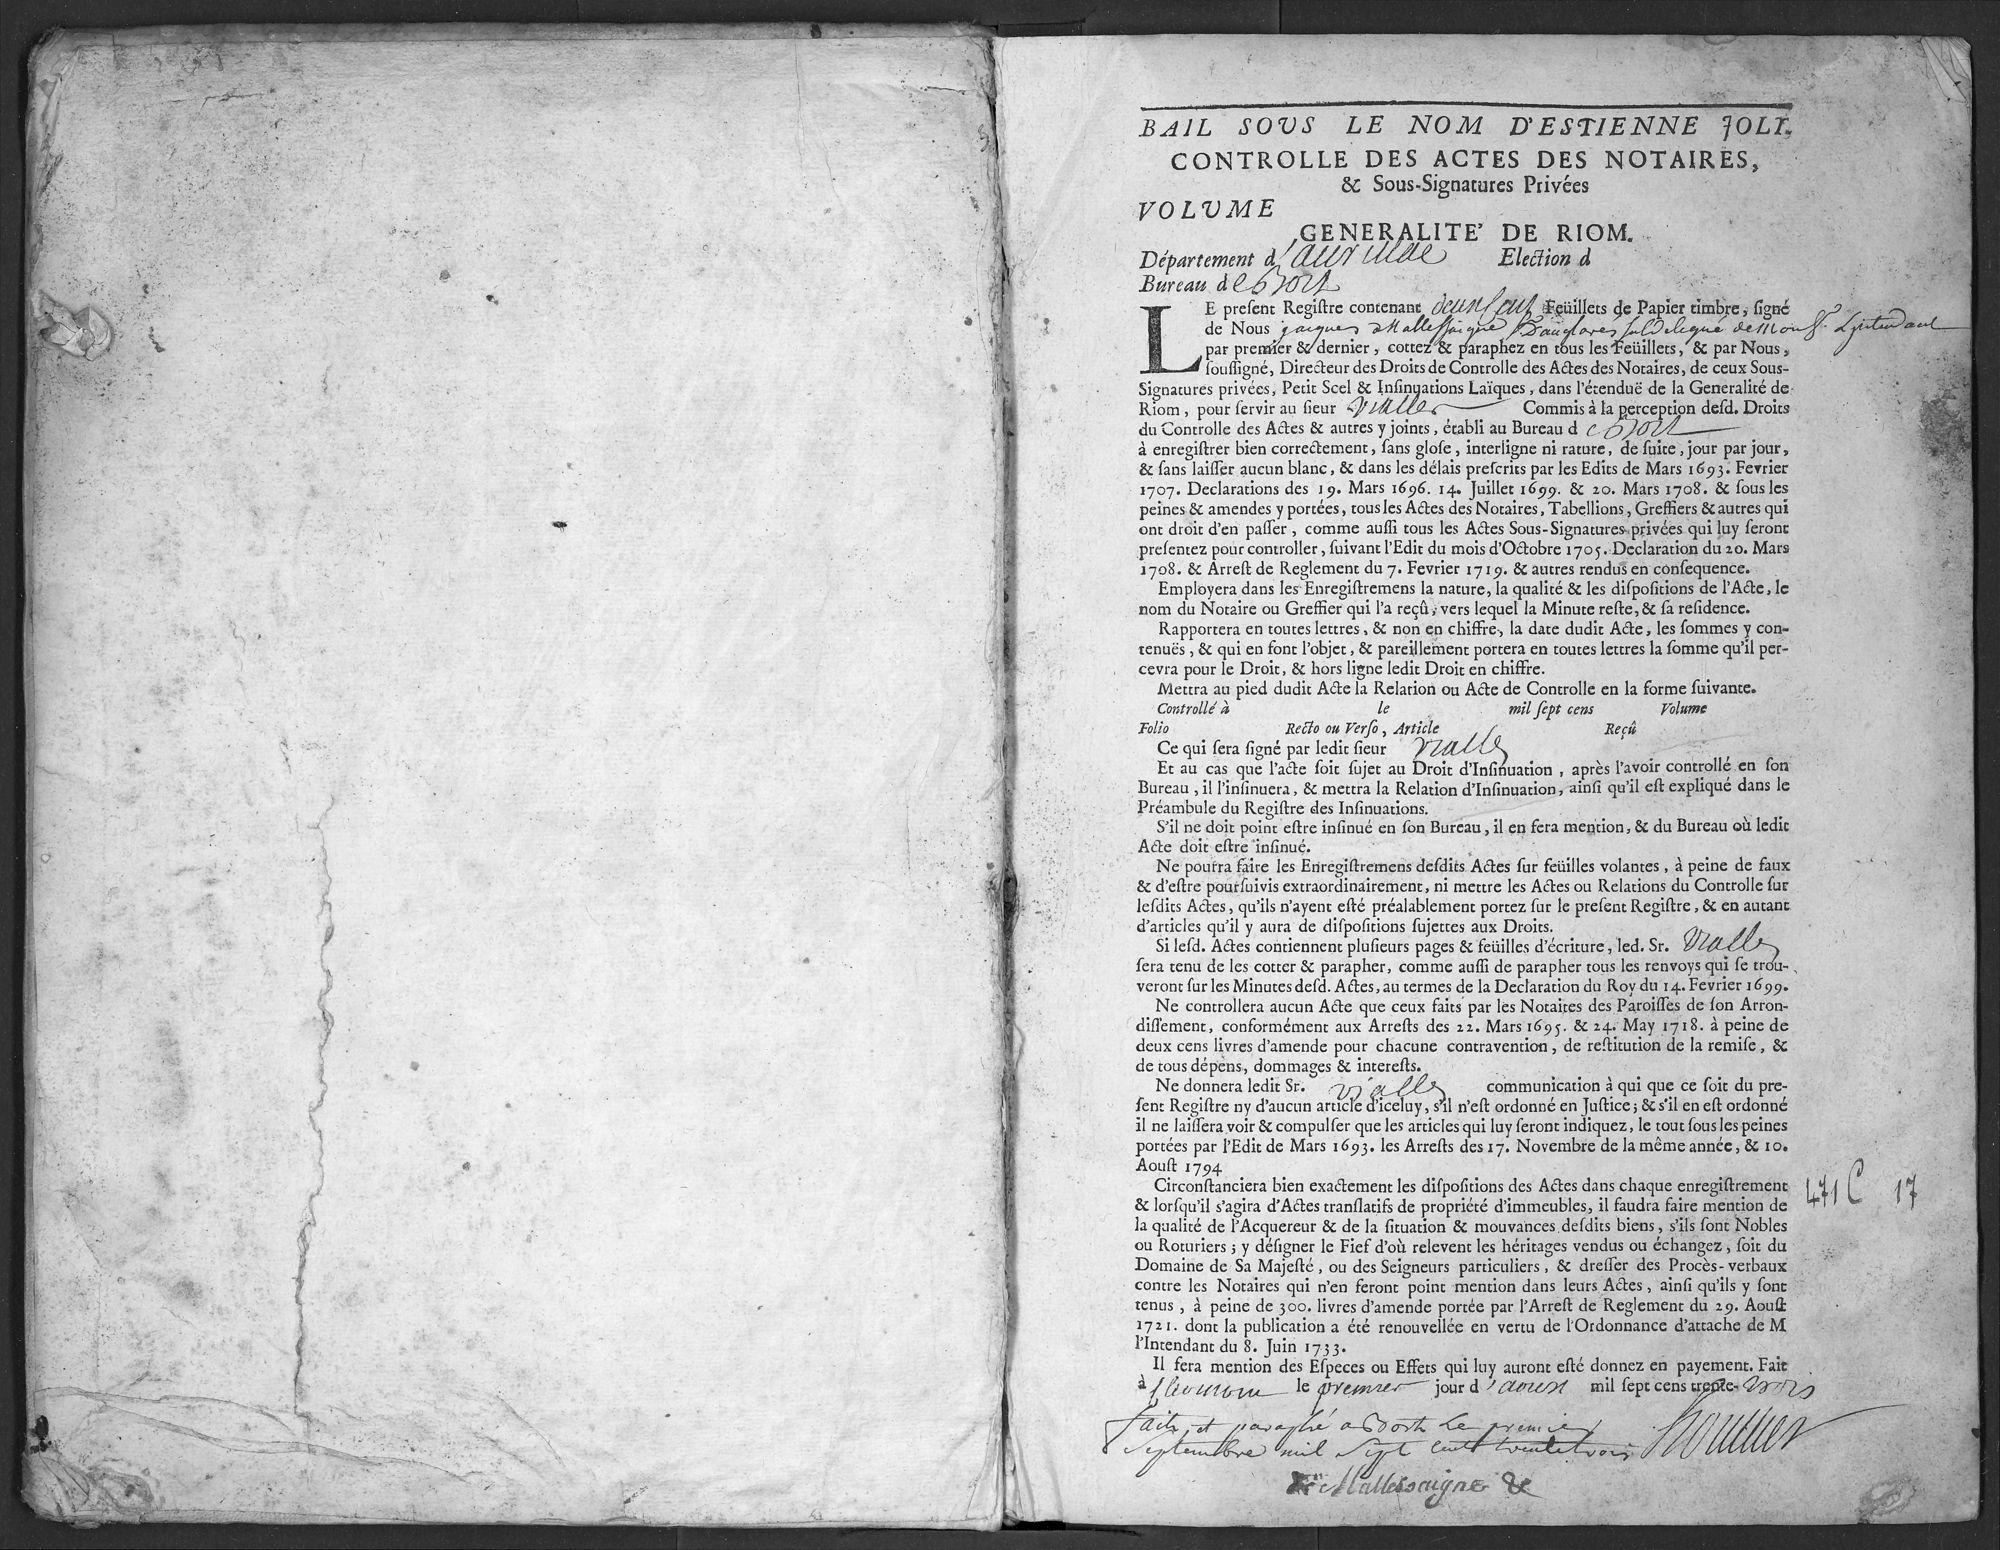 BAIL SOUS LE NOM D'ESTIENNE JOLY.
CONTROLLE DES ACTES DES NOTAIRES,
& Sous-Signatures Privées
VOLUME
GENERALITE' DE RIOM.
Département d Election d
Bureau de Bort
LE preſent Regiſtre contenant Feüillets de Papier timbre, ſigné
de Nous jacques Mallessaigne subdelegué de Monsr. L'intendant
par premier & dernier, cottez & paraphez en tous les Feüillets, & par Nous,
ſouſſigné, Directeur des Droits de Controlle des Actes des Notaires, de ceux Sous-
Signatures privées, Petit Scel & Inſinuations Laïques, dans l'étenduë de la Generalité de
Riom, pour ſervir au ſieur vialle Commis à la perception deſd. Droits
du Controlle des Actes & autres y joints, établi au Bureau de Bort
à enregiſtrer bien correctement, ſans gloſe, interligne ni rature, de ſuite, jour par jour,
& ſans laiſſer aucun blanc, & dans les délais preſcrits par les Edits de Mars 1693. Fevrier
1707. Declarations des 19. Mars 1696. 14. Juillet 1699. & 20. Mars 1708. & ſous les
peines & amendes y portées, tous les Actes des Notaires, Tabellions, Greffiers & autres qui
ont droit d'en paſſer, comme auſſi tous les Actes Sous-Signatures privées qui luy ſeront
preſentez pour controller, ſuivant l'Edit du mois d'Octobre 1705. Declaration du 20. Mars
1708. & Arreſt de Reglement du 7. Fevrier 1719. & autres rendus en conſequence.
Employera dans les Enregiſtremens la nature, la qualité & les diſpoſitions de l'Acte, le
nom du Notaire ou Greffier qui l'a reçû, vers lequel la Minute reſte, & ſa reſidence.
Rapportera en toutes lettres, & non en chiffre, la date dudit Acte, les ſommes y con-
tenuës, & qui en font l'objet, & pareillement portera en toutes lettres la ſomme qu'il per-
cevra pour le Droit, & hors ligne ledit Droit en chiffre.
Mettra au pied dudit Acte la Relation ou Acte de Controlle en la forme ſuivante.
Controllé à le mil ſept cens Volume
Folio Recto ou Verſo, Article Reçû
Ce qui ſera ſigné par ledit ſieur vialle
Et au cas que l'acte ſoit ſujet au Droit d'Inſinuation, après l'avoir controllé en ſon
Bureau, il l'inſinuera, & mettra la Relation d'Inſinuation, ainſi qu'il eſt expliqué dans le
Préambule du Regiſtre des Inſinuations.
S'il ne doit point eſtre inſinué en ſon Bureau, il en fera mention, & du Bureau où ledit
Acte doit eſtre inſinué.
Ne pourra faire les Enregiſtremens deſdits Actes ſur feüilles volantes, à peine de faux
& d'eſtre pourſuivis extraordinairement, ni mettre les Actes ou Relations du Controlle ſur
leſdits Actes, qu'ils n'ayent eſté préalablement portez ſur le preſent Regiſtre, & en autant
d'articles qu'il y aura de diſpoſitions ſujettes aux Droits.
Si leſd. Actes contiennent pluſieurs pages & feüilles d'écriture, led. Sr. vialle
ſera tenu de les cotter & parapher, comme auſſi de parapher tous les renvoys qui ſe trou-
veront ſur les Minutes deſd. Actes, au termes de la Declaration du Roy du 14. Fevrier 1699.
Ne controllera aucun Acte que ceux faits par les Notaires des Paroiſſes de ſon Arron-
diſſement, conformément aux Arreſts des 22. Mars 1695. & 24. May 1718. à peine de
deux cens livres d'amende pour chacune contravention, de reſtitution de la remiſe, &
de tous dépens, dommages & intereſts.
Ne donnera ledit Sr. vialle communication à qui que ce ſoit du pre-
ſent Regiſtre ny d'aucun article d'iceluy, s'il n'eſt ordonné en Juſtice; & s'il en eſt ordonné
il ne laiſſera voir & compulſer que les articles qui luy ſeront indiquez, le tout ſous les peines
portées par l'Edit de Mars 1693. les Arreſts des 17. Novembre de la même année, & 10.
Aouſt 1794
Circonſtanciera bien exactement les diſpoſitions des Actes dans chaque enregiſtrement
& lorſqu'il s'agira d'Actes tranſlatifs de propriété d'immeubles, il faudra faire mention de
la qualité de l'Acquereur & de la ſituation & mouvances deſdits biens, s'ils ſont Nobles
ou Roturiers; y déſigner le Fief d'où relevent les héritages vendus ou échangez, ſoit du
Domaine de Sa Majeſté, ou des Seigneurs particuliers, & dreſſer des Procès-verbaux
contre les Notaires qui n'en feront point mention dans leurs Actes, ainſi qu'ils y ſont
tenus, à peine de 300. livres d'amende portée par l'Arreſt de Reglement du 29. Aouſt
1721. dont la publication a été renouvellée en vertu de l'Ordonnance d'attache de M
l'Intendant du 8. Juin 1733.
Il fera mention des Eſpeces ou Effets qui luy auront eſté donnez en payement. Fait
à le premier jour d'aoust mil ſept cens trente-trois
faits et paraphé a Bort le premier
septembre mil sept cent trente trois
Mallessaigne
471 C 17